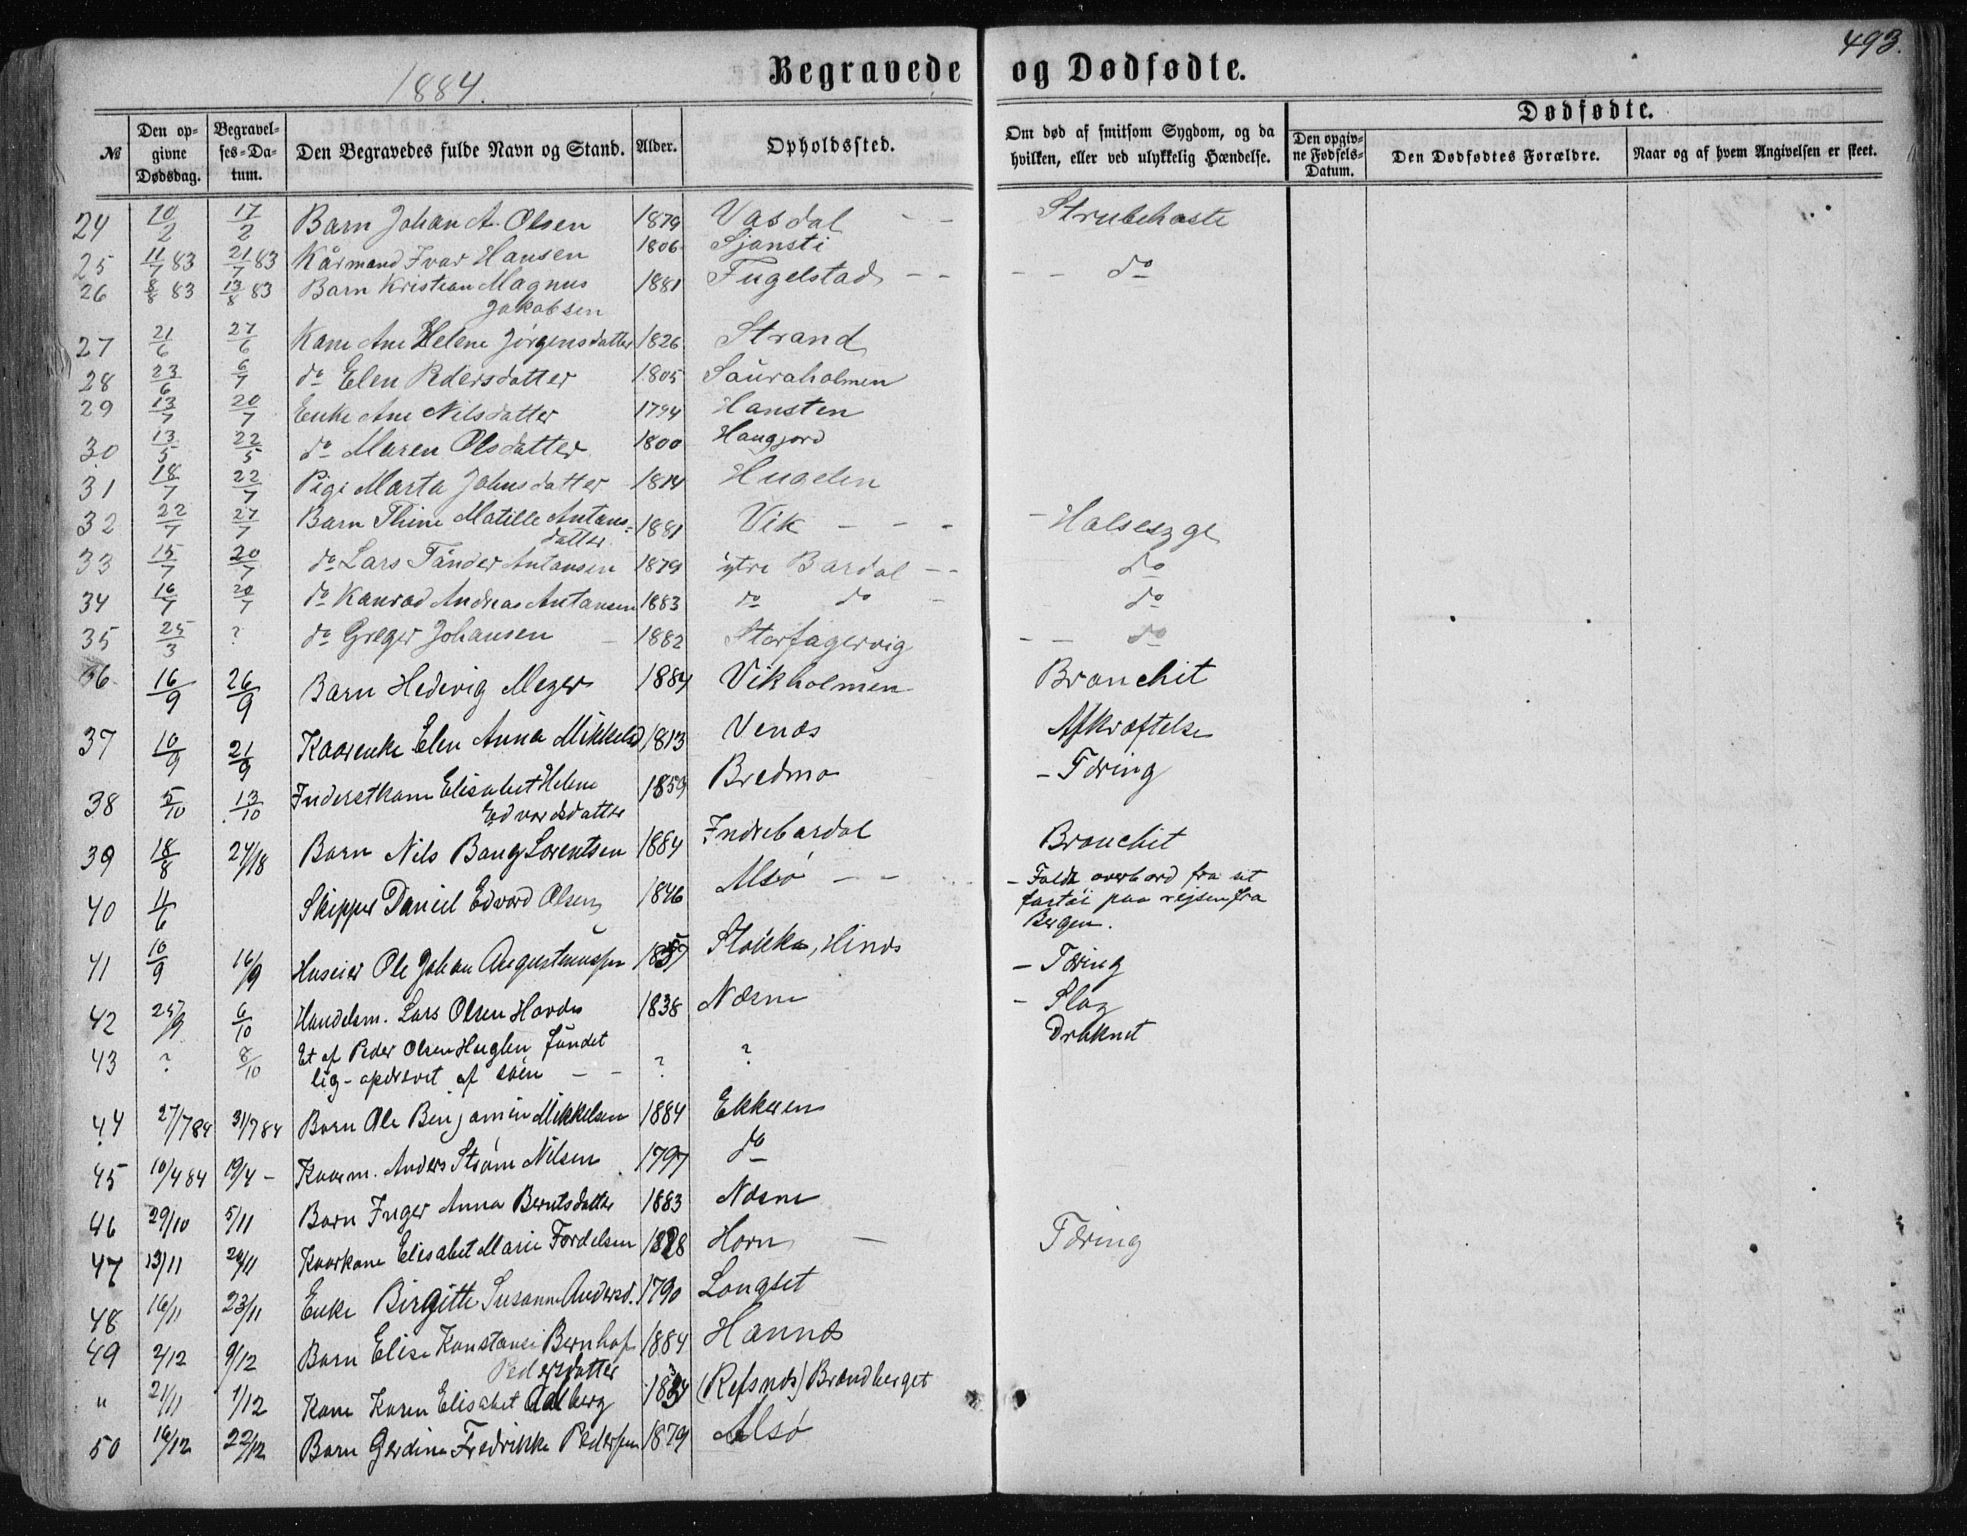 493.
1884.
Begravede og Dødfødte.
Dødfødte.
№ Den opgivne Dødsdag. Begravelses-Datum. Den Begravedes fulde Navn og Stand. Alder. Opholdssted. Om død af smitsom Sygdom, og da hvilken, eller ved ulykkelig Hændelse. Den opgivne Fødsels-Datum. Den Dødfødtes Forældre. Naar og af hvem Angivelsen er skeet.
24 10/2 17/2 Barn Johan A. Olsen 1879 Vasdal - - Strubehoste
25 11/7 83 21/7 83 Kårmand Ivar Hansen 1806 Sjonsti
26 8/8 83 13/8 83 Barn Kristian Magnus 1881 Fugelstad - - - - do
Jakobsen
27 21/6 27/6 Kone Ane Helene Jørgensdatter 1826 Strand
28 23/6 6/7 do Elen Pedersdatter 1805 Sauraholmen
29 13/7 20/7 Enke Ane Nilsdatter 1794 Hansten
30 13/5 22/5 do Maren Olsdatter 1800 Haugjord
31 18/7 22/7 Pige Marta Johnsdatter 1814 Hugelen
32 22/7 27/7 Barn Thine Matille Antons- 1881 Vik - - - - Halsesyge
datter
33 15/7 20/7 do Lars Tånder Antonsen 1879 ytre Bardal - - do
34 16/7 20/7 do Konrad Andreas Antonsen 1883 do do - do
35 25/3 ? do Greger Johansen - 1882 Storfagervig - - do
36 16/9 26/9 Barn Hedevig Meyer 1884 Vikholmen Bronchit
37 10/9 21/9 Kaarenke Elen Anna Mikkelsd 1813 Venæs Afkræftelse
38 5/10 13/10 Inderstkone Elisabet Helene 1859 Bredmo - Tæring
Edvardsdatter
39 18/8 24/8 Barn Nils Bang Lorentsen 1884 Indrebardal Bronchit
40 11/6 Skipper Daniel Edvard Olsen 1846 Alsø - - - Faldt overbord fra sit
fartøi paa rejsen fra
Bergen.
41 10/9 16/9 Huseier Ole Johan Augustinussen 1857 Stokka, Hinæs - Tæring
42 25/9 6/10 Handelsm. Lars Olsen Hovde 1838 Næsne - Slag
43 ? 8/10 Et af Peder Olsen Huglen fundet ? ? Druknet
lig - opdrevet af søen - -
44 27/7 84 31/7 84 Barn Ole Benjamin Mikkelsen 1884 Ekkeren
45 10/4 84 19/4 - Kaarm. Anders Strøm Nilsen 1797 do
46 29/10 5/11 Barn Inger Anna Berntsdatter 1883 Næsne
47 13/11 20/11 Kaarkone Elisabet Marie Tordelsen 1828 Horn - Tæring
48 16/11 23/11 Enke Birgitte Susanne Andersd. 1790 Langset
49 2/12 9/12 Barn Elise Konstanse Bernhof 1884 Hannæs
Pedersdatter
" 21/11 1/12 Kone Karen Elisabet Dalberg 1834 (Refsnæs) Brændberget
50 16/12 22/12 Barn Gerdine Fredrikke Pedersen 1879 Alsø